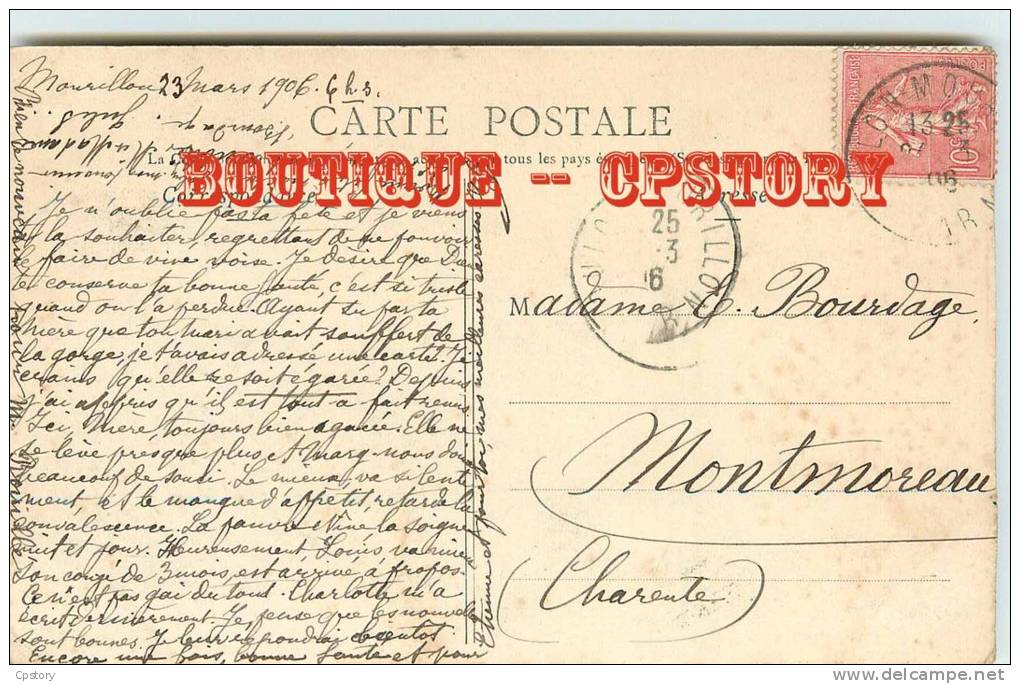 Mourillon 23 Mars 1906. 6 h. 3.
CARTE POSTALE
BOUTIQUE -- CPSTORY
tous les pays
Je n'oublie pas ta fête et je viens
la souhaiter, regrettant de ne pouvoir
le faire de vive voise. Je désire que Dieu
te conserve ta bonne santé, c'est si triste
quand on l'a perdue. Ayant su par ta
Mère que ton Mari avait souffert de
la gorge, je t'avais adressé une carte. Je
crains qu'elle se soit égarée? Depuis
j'ai appris qu'il est tout à fait remis.
Ici, Mère toujours bien agacée. Elle ne
se lève presque plus et Marg. nous donne
beaucoup de souci. Le mieux va si lent
ement, et le manque d'appétit, retarde la
convalescence. La pauvre la soigne
nuit et jour. Heureusement Louis va mieux
son congé de 3 mois, est arrivé à propos
Ce n'est pas gai du tout. Charlotte m'a
écrit dernièrement. Je pense que les nouvelles
sont bonnes. Je leur répondrai bientôt
Encore une fois, bonne Santé et pour
Etienne et pour toi, mes meilleures caresses
25
-3
06
RILLON
13 25
3
06
10c
Madame E. Bourdage,
Montmoreau
Charente
Cpstory
delcampe.net